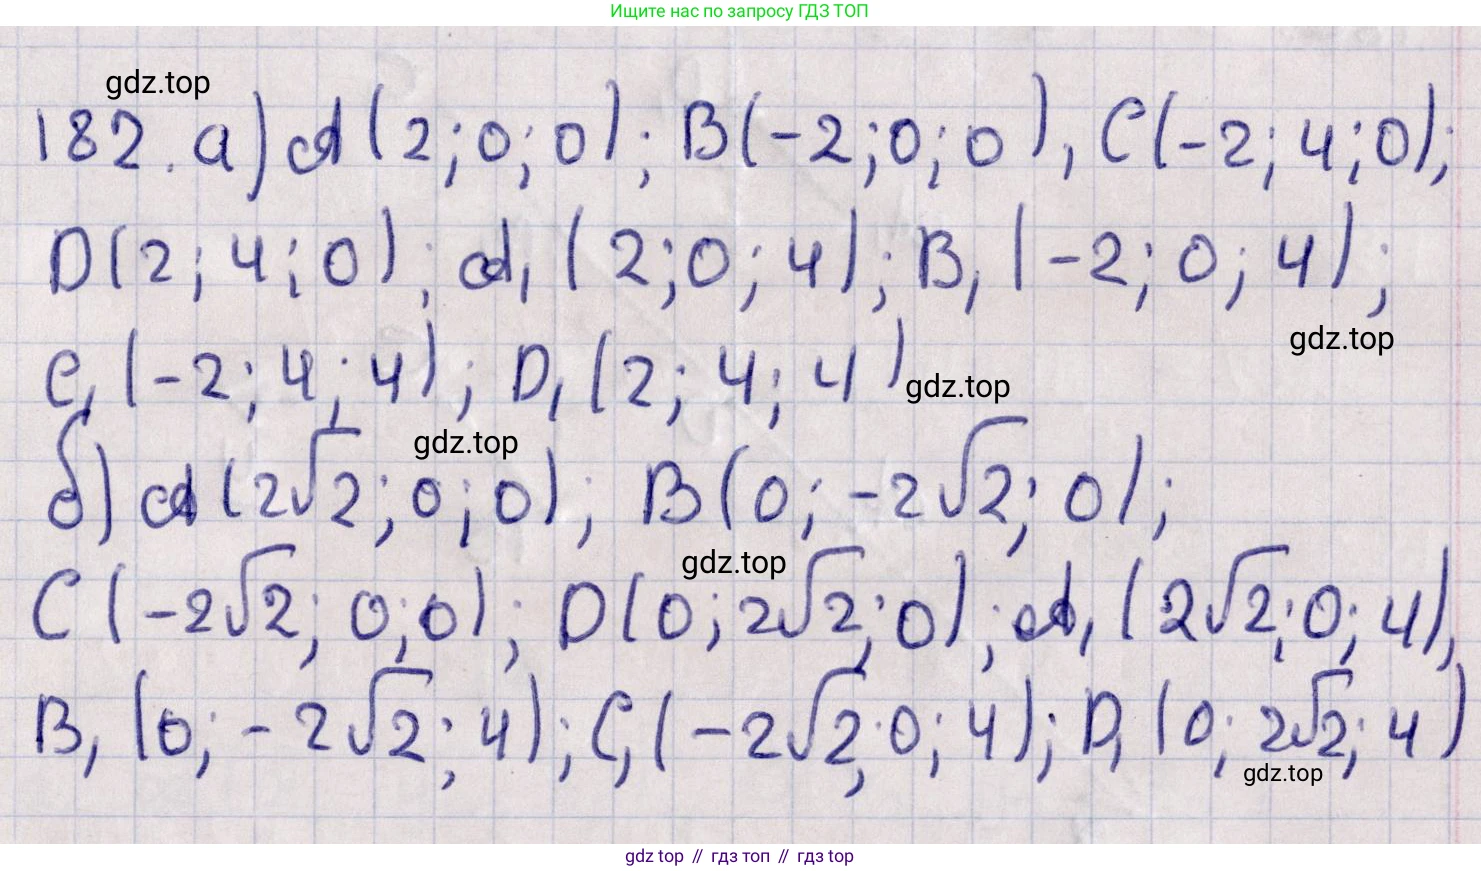 Ищите нас по запросу ГДЗ ТОП
gdz.top
182. а) A(2; 0; 0); B(-2; 0; 0), C(-2; 4; 0);
D(2; 4; 0); A₁(2; 0; 4); B₁(-2; 0; 4);
gdz.top
C₁(-2; 4; 4); D₁(2; 4; 4)
gdz.top
gdz.top
б) A(2√2; 0; 0); B(0; -2√2; 0);
gdz.top
C(-2√2; 0; 0); D(0; 2√2; 0); A₁(2√2; 0; 4),
B₁(0; -2√2; 4); C₁(-2√2; 0; 4); D₁(0; 2√2; 4)
gdz.top
gdz top // гдз топ // гдз top